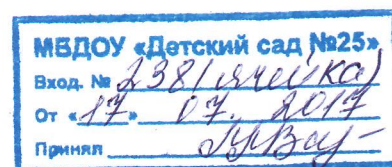 МБДОУ «Детский сад №25»
Вход. № 238 (ячейка)
От «17» 07. 2017
Принял